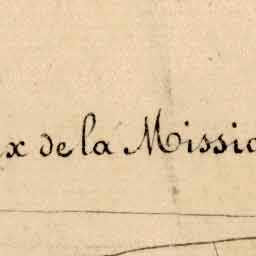 x de la Missio